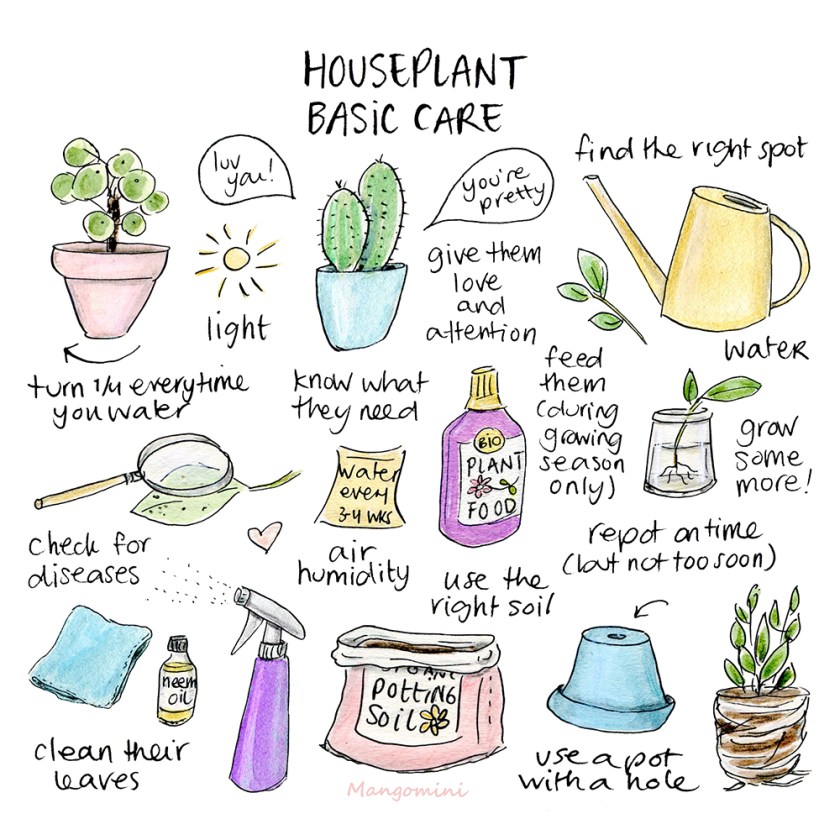 HOUSEPLANT
BASIC CARE
luv
you!
light
you're
pretty
give them
love
and
attention
find the right spot
water
turn 1/4 everytime
you water
know what
they need
water
every
3-4 WKS
BIO
PLANT
FOOD
feed
them
(during
growing
season
only)
grow
some
more!
check for
diseases
air
humidity
use the
right soil
repot on time
(but not too soon)
neem
oil
clean their
leaves
POTTING
Soil
use a pot
with a hole
Mangomini